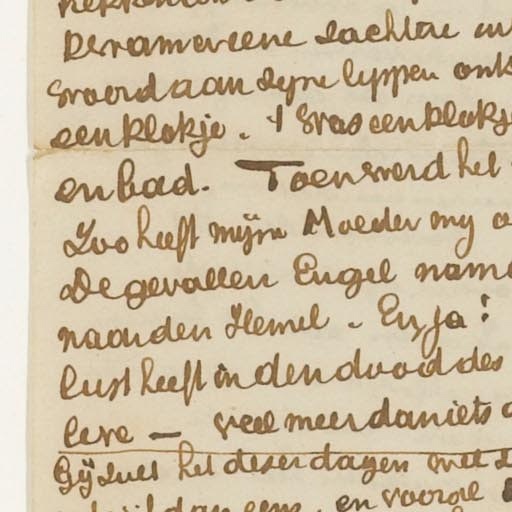 De rameveene lachtre en
woord aan zyne lyppen ont
een klokje. 't Was een klokje
en bad. Toen werd het
Zoo heeft mijne Moeder my
De gevallen Engel nam
naar den Hemel. En ja!
lust heeft in den dood des
leve — veel meer dan iets
Gij zult het dezer dagen met
en voor